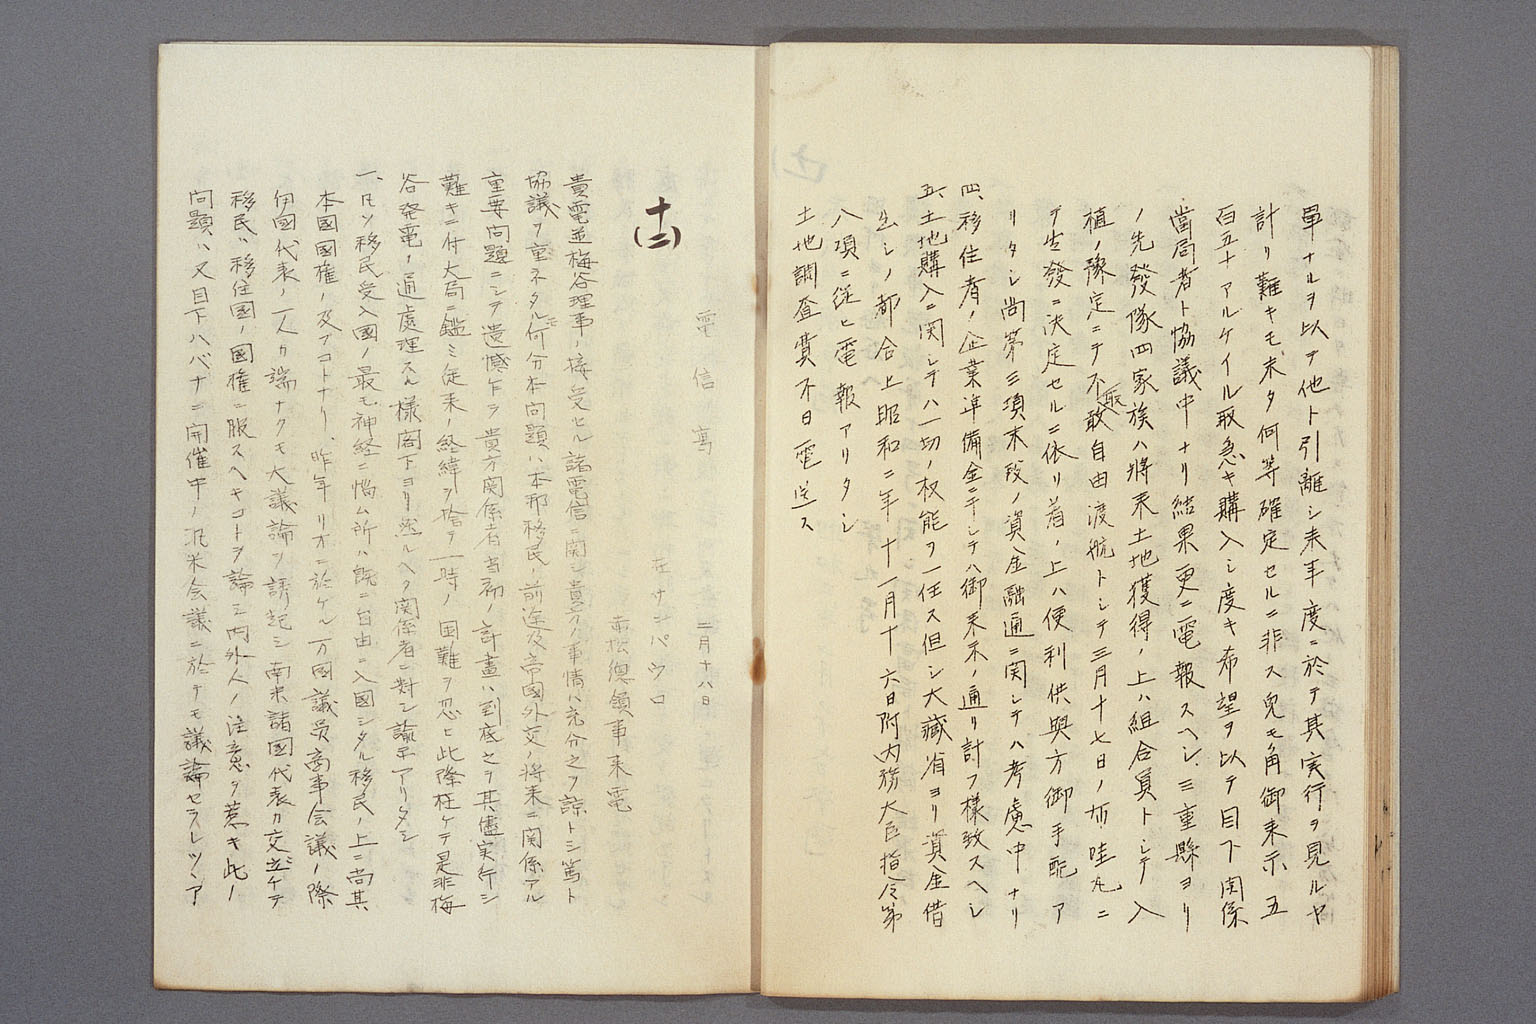 單ナルヲ以テ他ト引離シ来年度ニ於テ其実行ヲ見ルヤ
計リ難キモ未タ何等確定セルニ非ス兎モ角御来示五
百五十アルケイル取急キ購入シ度キ希望ヲ以テ目下関係
當局者ト協議中ナリ結果更ニ電報スヘシ、三重縣ヨリ
ノ先發隊四家族ハ将来土地獲得ノ上ハ組合員トシテ入
植ノ豫定ニテ不取敢自由渡航トシテ三月十七日ノ布哇丸ニ
テ出發ニ決定セルニ依リ着ノ上ハ便利供與方御手配ア
リタシ尚第三項末段ノ資金融通ニ関シテハ考慮中ナリ
四、移住者ノ企業準備金ニ干シテハ御来示ノ通リ計フ様致スヘシ
五、土地購入ニ関シテハ一切ノ权能ヲ一任ス但シ大藏省ヨリ資金借
出シノ都合上昭和二年十一月十六日附内務大臣指令第
八項ニ従ヒ電報アリタシ
土地調査費不日電送ス
十(二)
電信寫
二月十八日
在サンパウロ
赤松總領事来電
貴電並梅谷理事ノ接受セル諸電信ニ関シ貴方ノ事情ハ充分之ヲ諒トシ篤ト
協議ヲ重ネタル何分本問題ハ本邦移民ノ前途及帝國外交ノ将来ニ関係アル
重要問題ニシテ遺憾乍ラ貴方関係者当初ノ計畫ハ到底之ヲ其儘実行シ
難キニ付大局ニ鑑ミ従来ノ経緯ヲ捨テ一時ノ困難ヲ忍ヒ此際枉ケテ是非梅
谷発電ノ通處理スル様閣下ヨリ然ルヘク関係者ニ對シ諭示アリタシ
一、凡ソ移民受入國ノ最モ神経ニ悩ム所ハ既ニ自由ニ入國シタル移民ノ上ニ尚其
本國國権ノ及フコトナリ、昨年リオニ於ケル万國議員商事会議ノ際
伊國代表ノ一人カ端ナクモ大議論ヲ誘起シ南米諸國代表カ交々立チテ
移民ハ移住國ノ國権ニ服スヘキコトヲ論シ内外人ノ注意ヲ惹キ此ノ
問題ハ又目下ハバナニ開催中ノ汎米会議ニ於テモ議論セラレツヽア